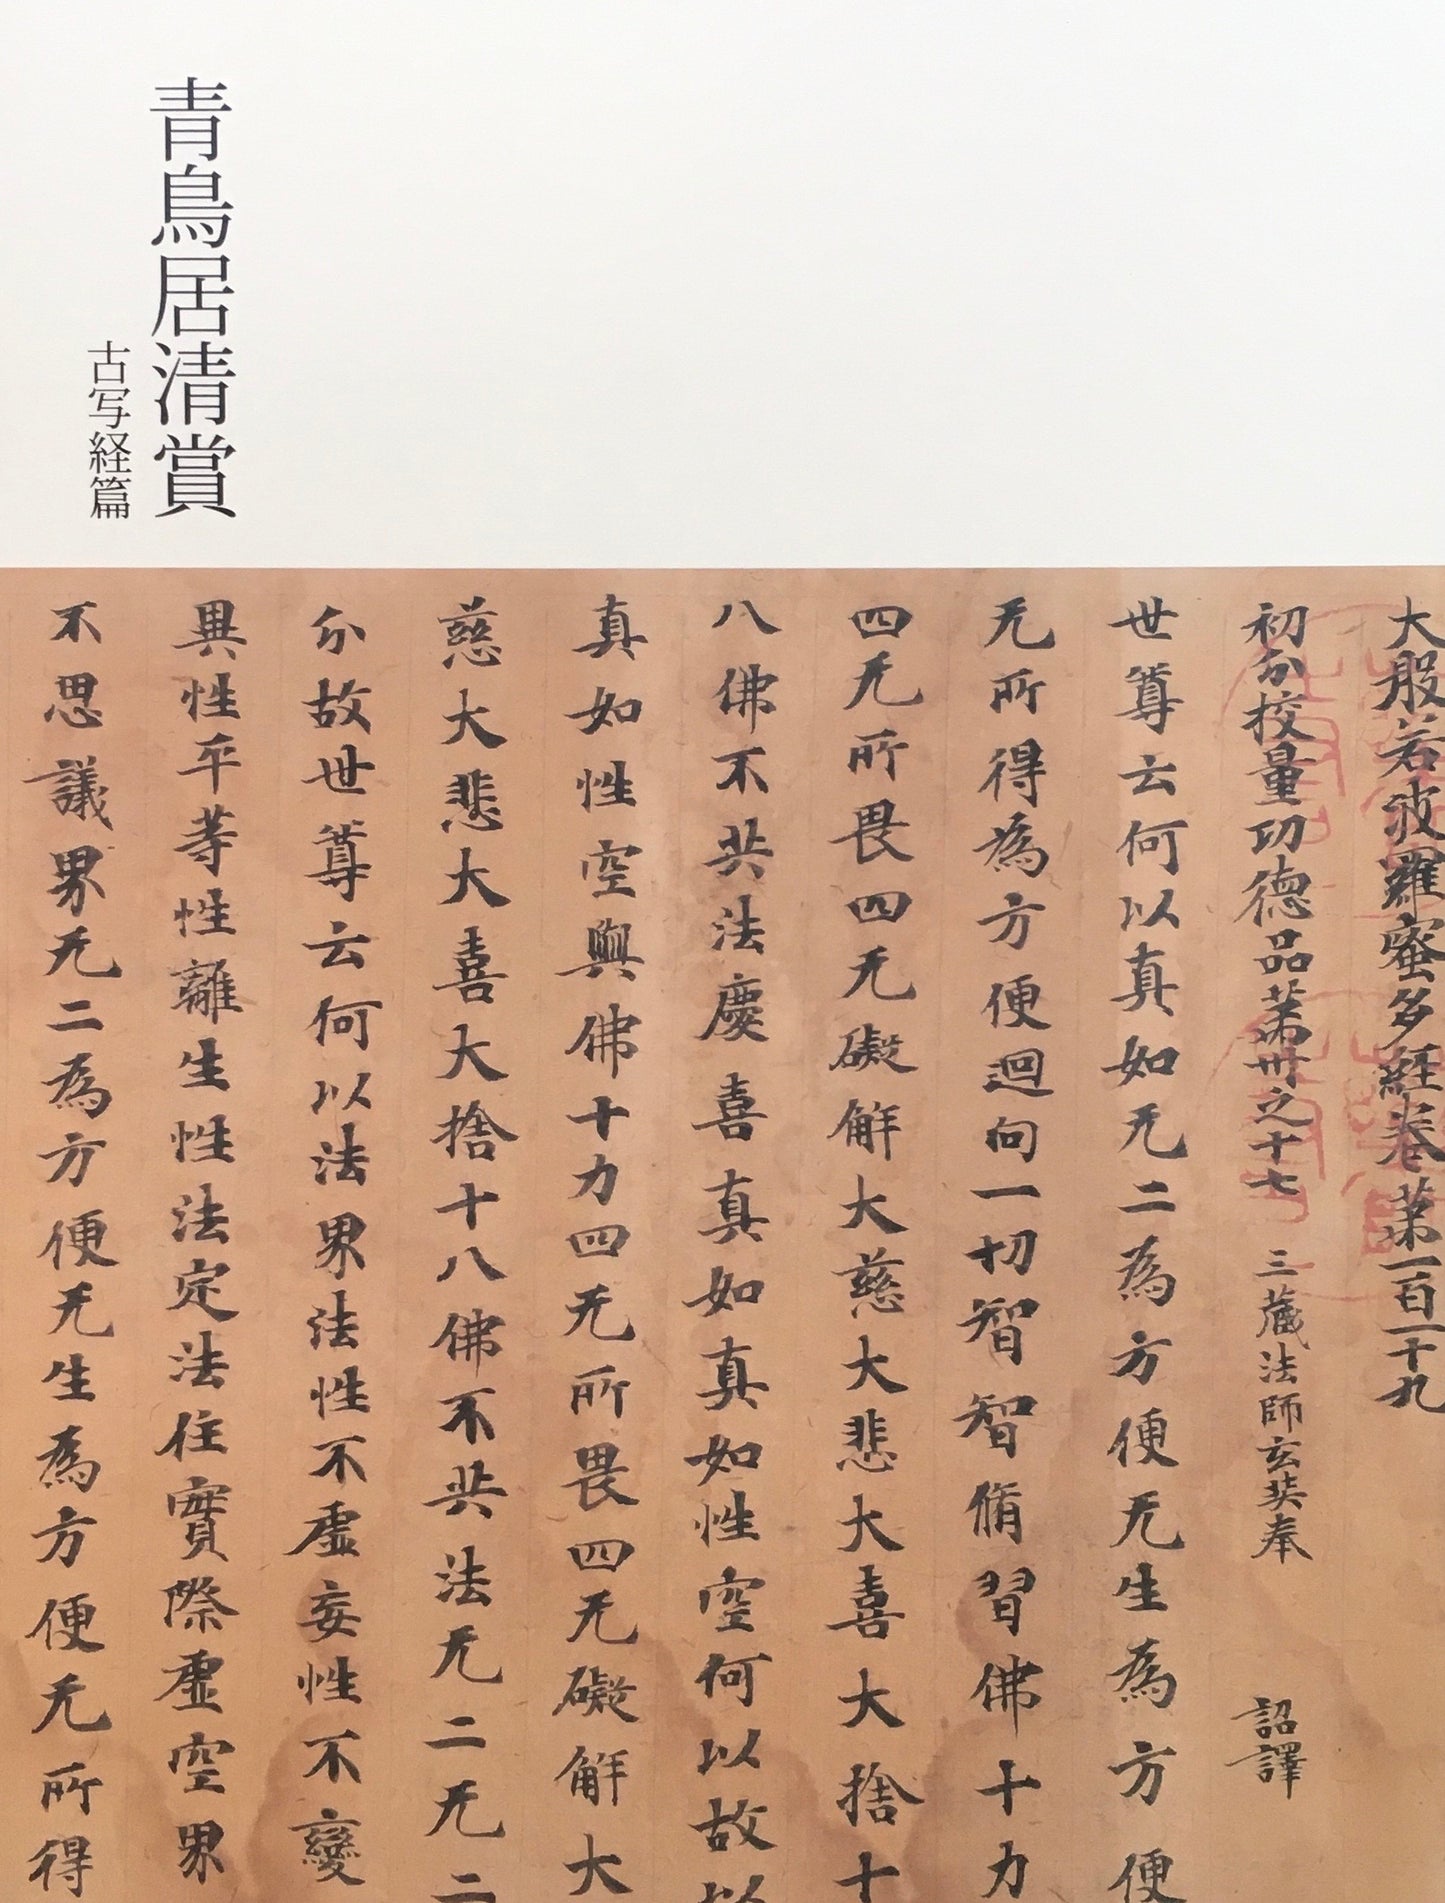 青鳥居清賞
古写経篇
大般若波羅蜜多経巻第一百一十九
初分校量功徳品第卅之十七 三蔵法師玄奘奉 詔譯
世尊云何以真如无二為方便无生為方便
无所得為方便迴向一切智智脩習佛十力
四无所畏四无礙解大慈大悲大喜大捨十
八佛不共法慶喜真如真如性空何以故以
真如性空與佛十力四无所畏四无礙解大
慈大悲大喜大捨十八佛不共法无二无二
分故世尊云何以法界法性不虚妄性不變
異性平等性離生性法定法住實際虚空界
不思議界无二為方便无生為方便无所得